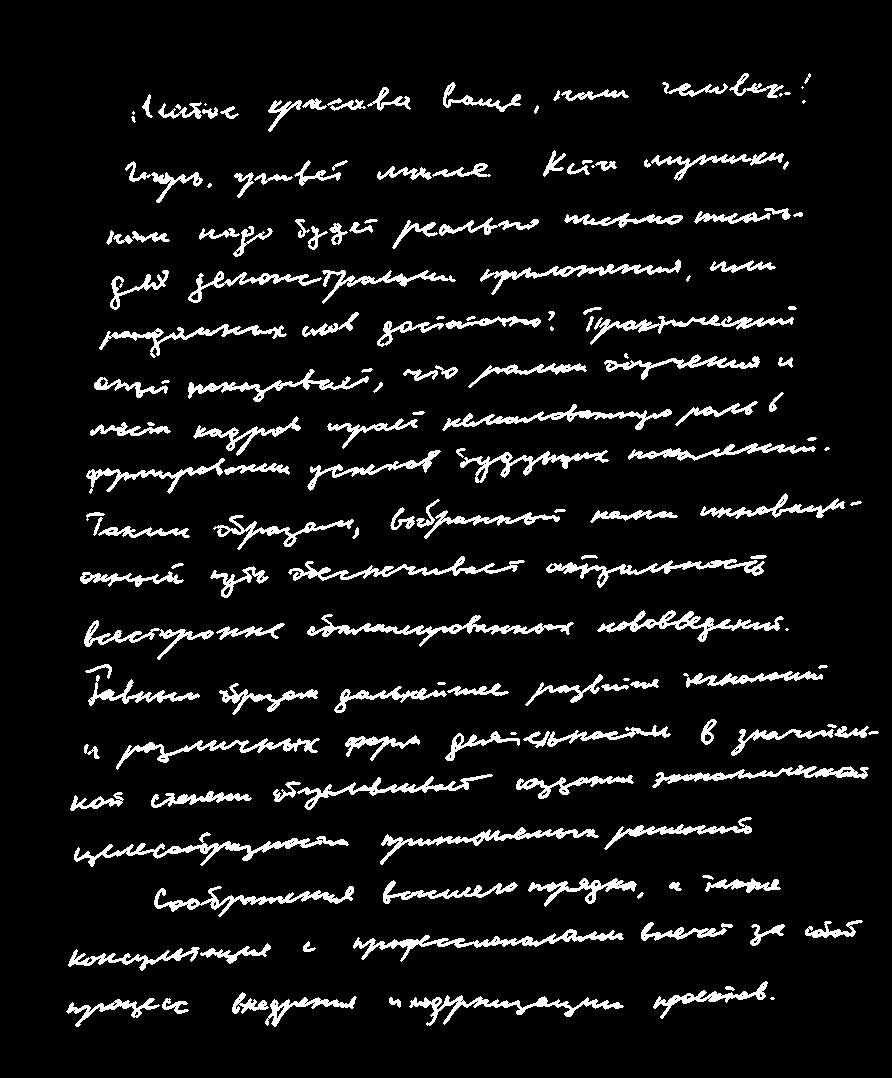 красава ваще, наш человек!
Игорь, привет мне Кста мужики,
нам надо будет реально письмо писать
для демонстрации приложения, или
рандомных слов достаточно? Практический
опыт показывает, что рамки обучения и
места кадров играет немаловажную роль в
формировании успехов будущих поколений.
Таким образом, выбранный нами инноваци-
онный путь обеспечивает актуальность
всесторонне сбалансированных нововведений.
Равным образом дальнейшее развитие технологий
и различных форм деятельности в значитель-
ной степени обуславливает создание экономической
целесообразности принимаемых решений
Соображения высшего порядка, а также
консультация с профессионалами влечет за собой
процесс внедрения и модернизации проектов.